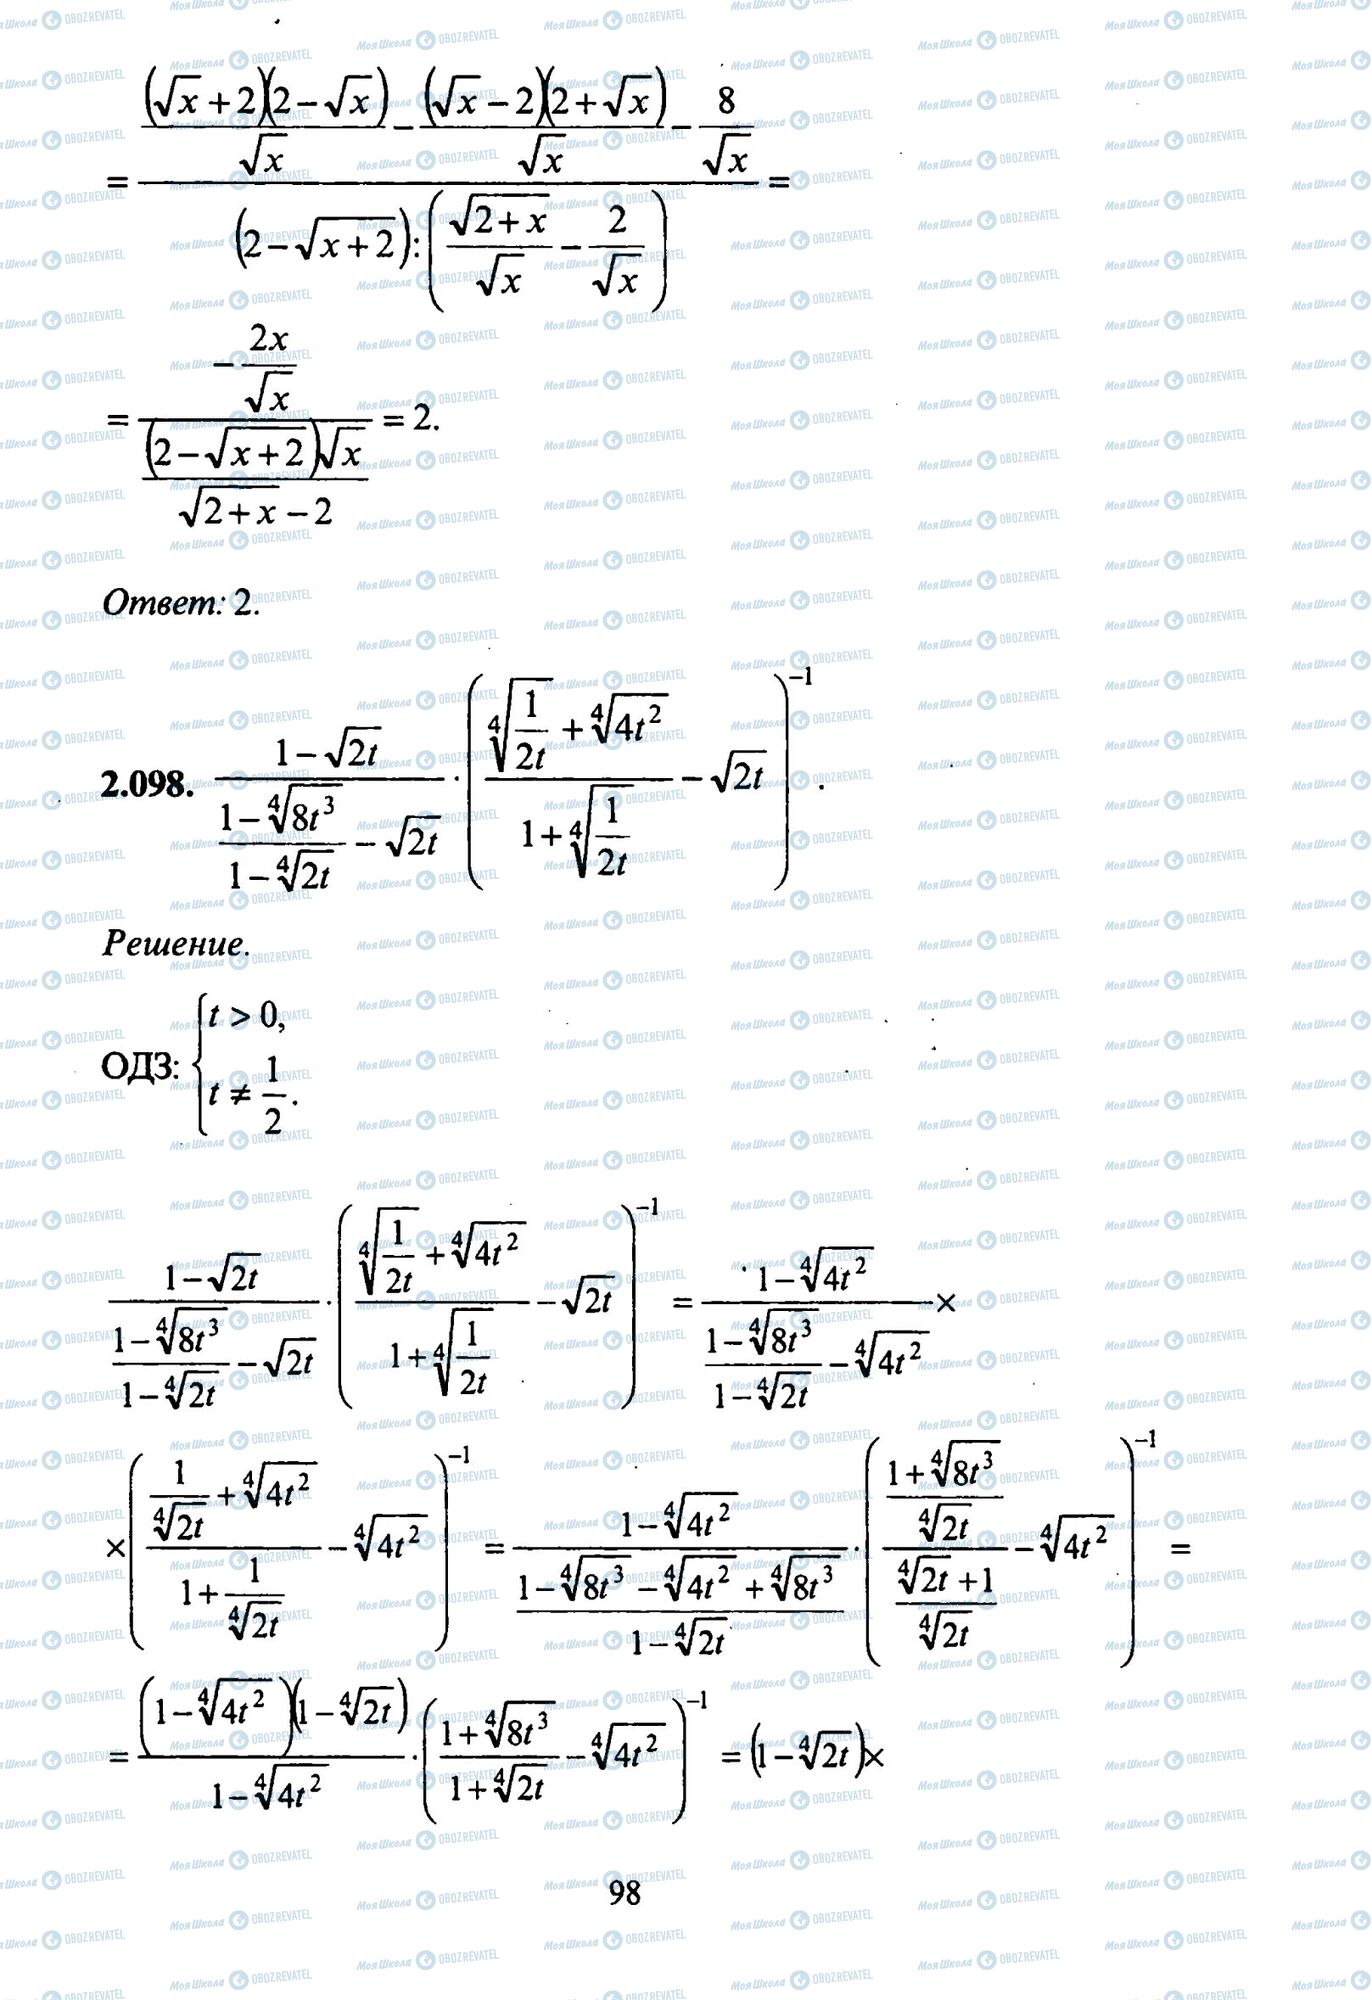 = \frac{\frac{(\sqrt{x}+2)(2-\sqrt{x})}{\sqrt{x}} - \frac{(\sqrt{x}-2)(2+\sqrt{x})}{\sqrt{x}} - \frac{8}{\sqrt{x}}}{(2-\sqrt{x+2}):\left(\frac{\sqrt{2+x}}{\sqrt{x}} - \frac{2}{\sqrt{x}}\right)} =
= \frac{-\frac{2x}{\sqrt{x}}}{\frac{(2-\sqrt{x+2})\sqrt{x}}{\sqrt{2+x}-2}} = 2.
Ответ: 2.
2.098. \frac{1-\sqrt{2t}}{\frac{1-\sqrt[4]{8t^3}}{1-\sqrt[4]{2t}} - \sqrt{2t}} \cdot \left(\frac{\sqrt[4]{\frac{1}{2t}} + \sqrt[4]{4t^2}}{1+\sqrt[4]{\frac{1}{2t}}} - \sqrt{2t}\right)^{-1}.
Решение.
ОДЗ: \begin{cases} t > 0, \\ t \neq \frac{1}{2}. \end{cases}
\frac{1-\sqrt{2t}}{\frac{1-\sqrt[4]{8t^3}}{1-\sqrt[4]{2t}} - \sqrt{2t}} \cdot \left(\frac{\sqrt[4]{\frac{1}{2t}} + \sqrt[4]{4t^2}}{1+\sqrt[4]{\frac{1}{2t}}} - \sqrt{2t}\right)^{-1} = \frac{1-\sqrt[4]{4t^2}}{\frac{1-\sqrt[4]{8t^3}}{1-\sqrt[4]{2t}} - \sqrt[4]{4t^2}} ×
× \left(\frac{\frac{1}{\sqrt[4]{2t}} + \sqrt[4]{4t^2}}{1+\frac{1}{\sqrt[4]{2t}}} - \sqrt[4]{4t^2}\right)^{-1} = \frac{1-\sqrt[4]{4t^2}}{\frac{1-\sqrt[4]{8t^3} - \sqrt[4]{4t^2} + \sqrt[4]{8t^3}}{1-\sqrt[4]{2t}}} \cdot \left(\frac{\frac{1+\sqrt[4]{8t^3}}{\sqrt[4]{2t}}}{\frac{\sqrt[4]{2t}+1}{\sqrt[4]{2t}}} - \sqrt[4]{4t^2}\right)^{-1} =
= \frac{(1-\sqrt[4]{4t^2})(1-\sqrt[4]{2t})}{1-\sqrt[4]{4t^2}} \cdot \left(\frac{1+\sqrt[4]{8t^3}}{1+\sqrt[4]{2t}} - \sqrt[4]{4t^2}\right)^{-1} = (1-\sqrt[4]{2t})×
98
МояШкола OBOZREVATEL